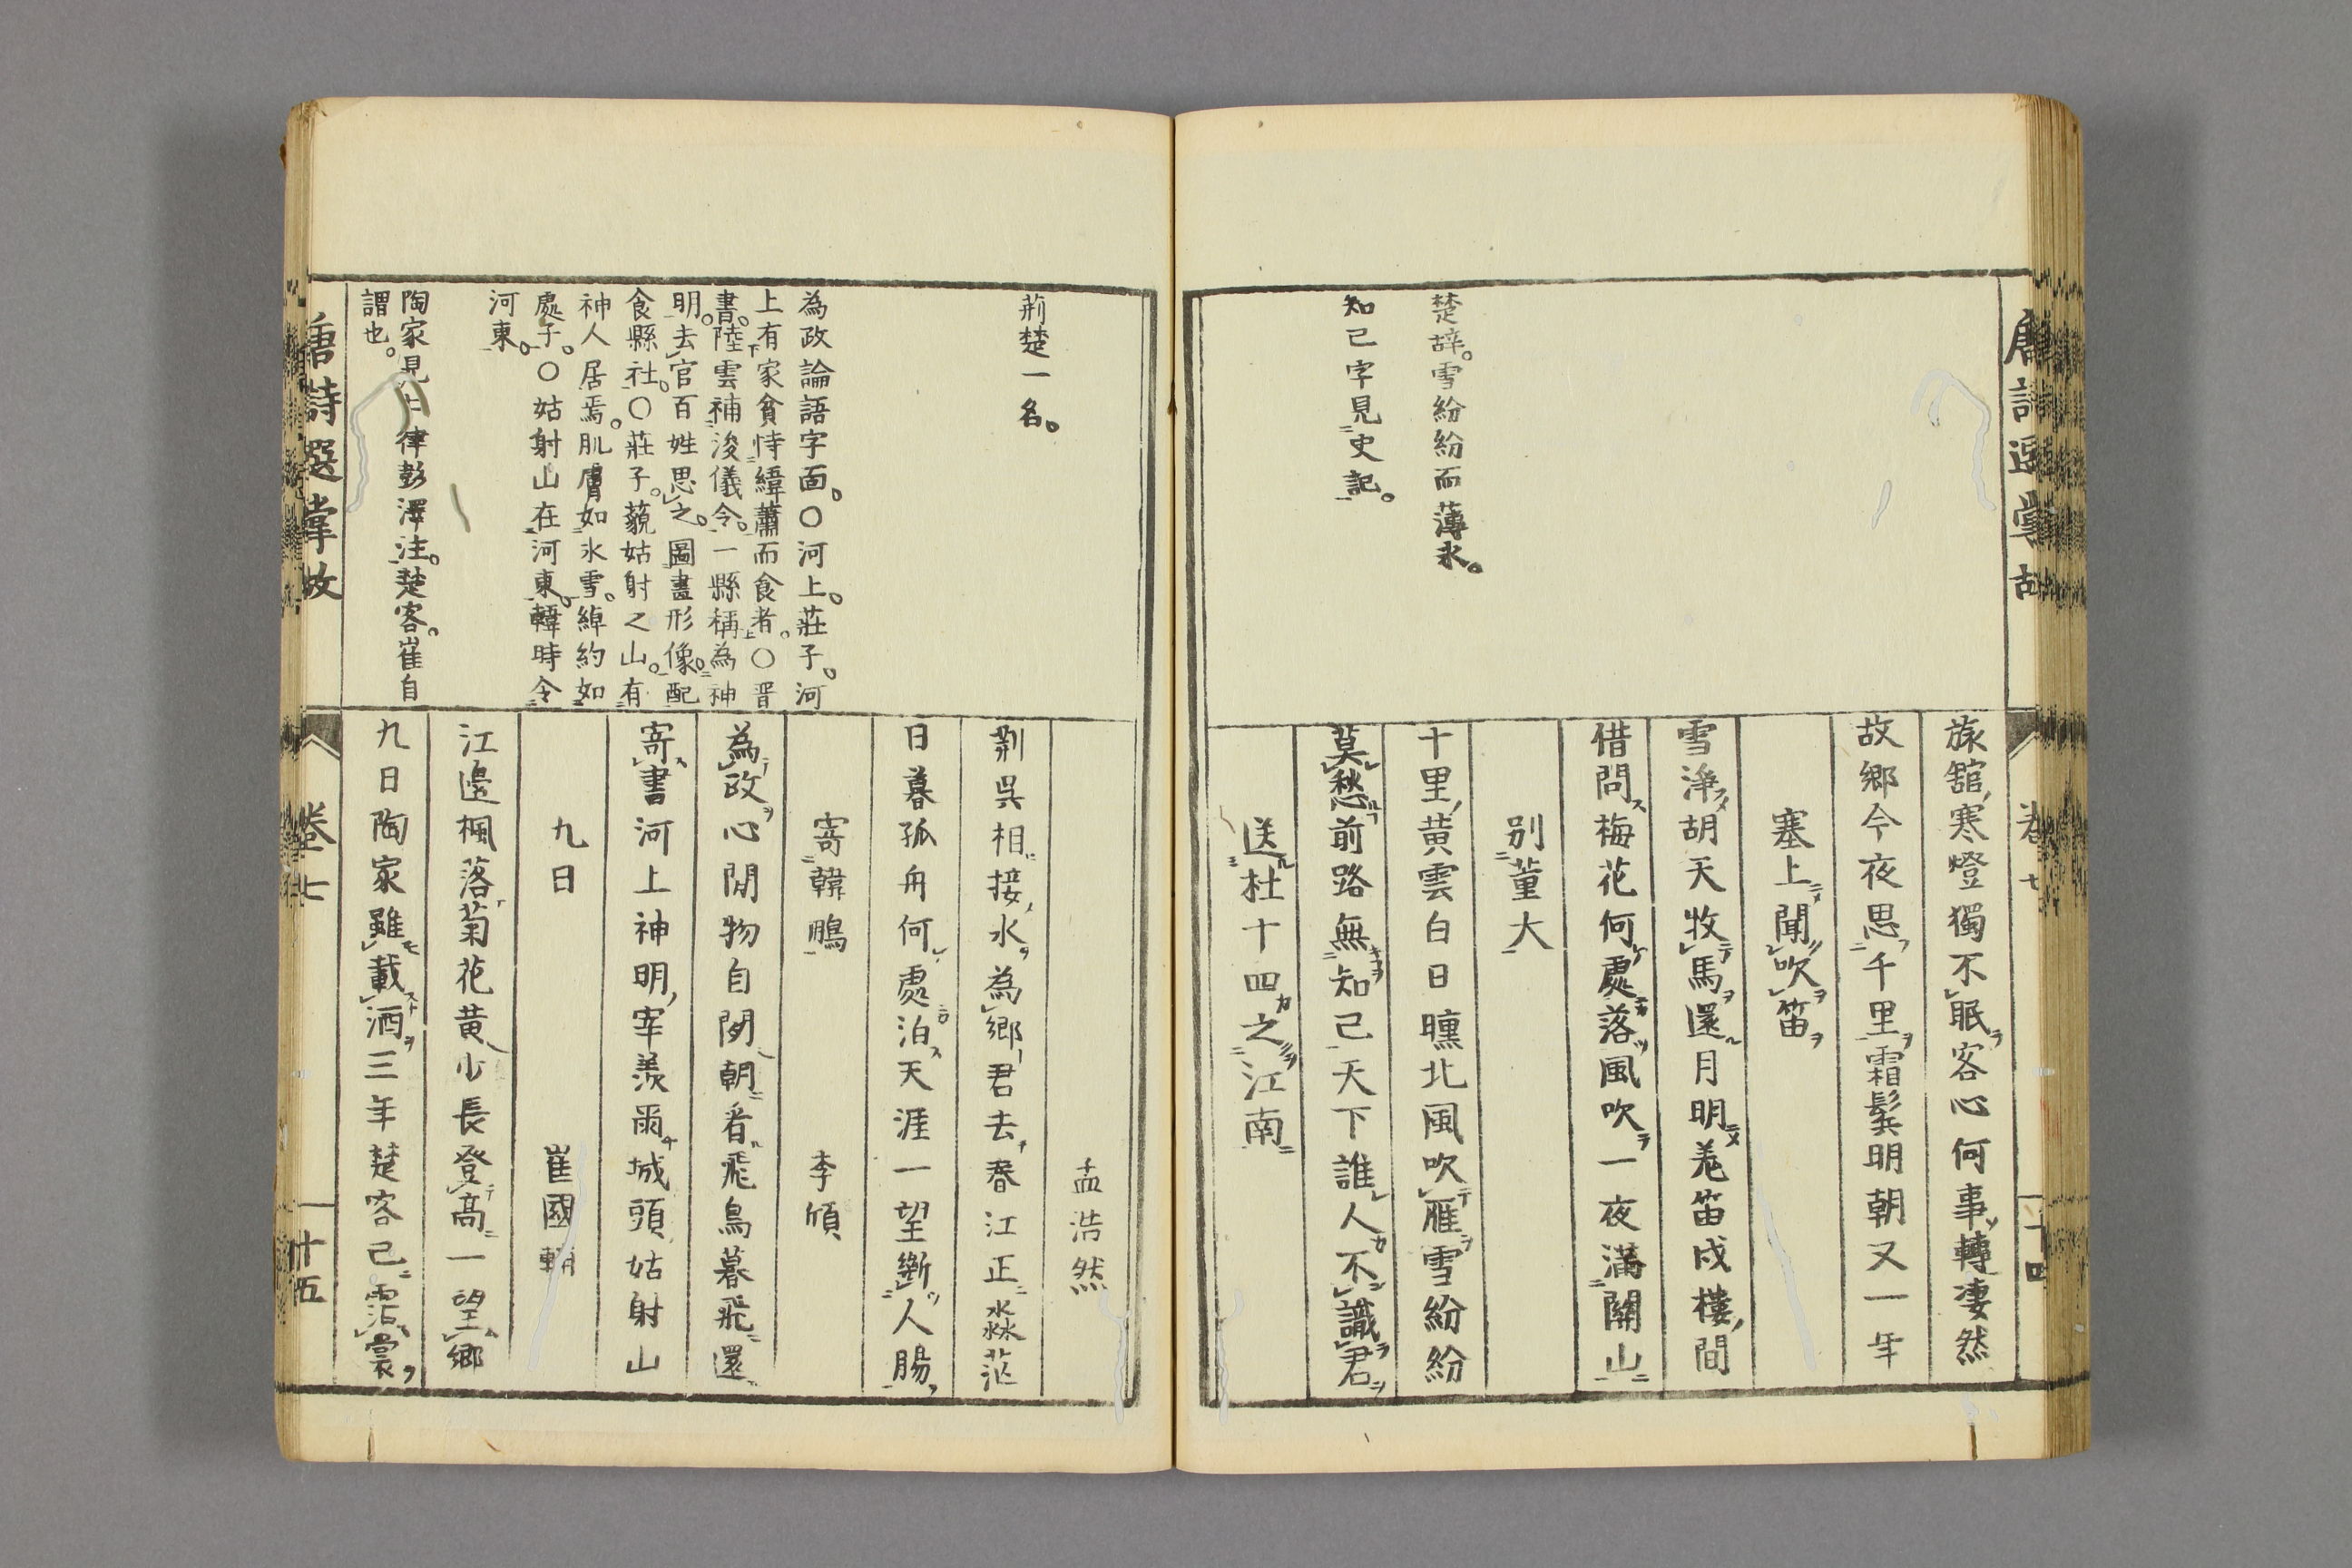 旅舘寒燈獨不眠客心何事轉凄然
故鄉今夜思千里霜鬂明朝又一年
塞上聞吹笛
雪淨胡天牧馬還月明羌笛戍樓間
借問梅花何處落風吹一夜滿關山
別董大
十里黃雲白日曛北風吹雁雪紛紛
莫愁前路無知己天下誰人不識君
送杜十四之江南
楚辞。雪紛紛而薄木。
知己字見史記。
孟浩然
荆吳相接水為鄉君去春江正淼茫
日暮孤舟何處泊天涯一望斷人腸
寄韓鵬
李頎
為政心閒物自閒朝看飛鳥暮飛還
寄書河上神明宰羨爾城頭姑射山
九日
崔國輔
江邊楓落菊花黃少長登高一望鄉
九日陶家雖載酒三年楚客已霑裳
荊楚一名。
為政論語字面。〇河上。莊子。河
上有家貧恃緯蕭而食者。〇晋
書。陸雲補浚儀令。一縣稱為神
明。去官百姓思之。圖畫形像。配
食縣社。〇莊子。藐姑射之山。有
神人居焉。肌膚如氷雪。綽約如
處子。〇姑射山在河東。韓時令
河東。
陶家見七律彭澤注。楚客。崔自
謂也。
唐詩選掌故
卷七
十五